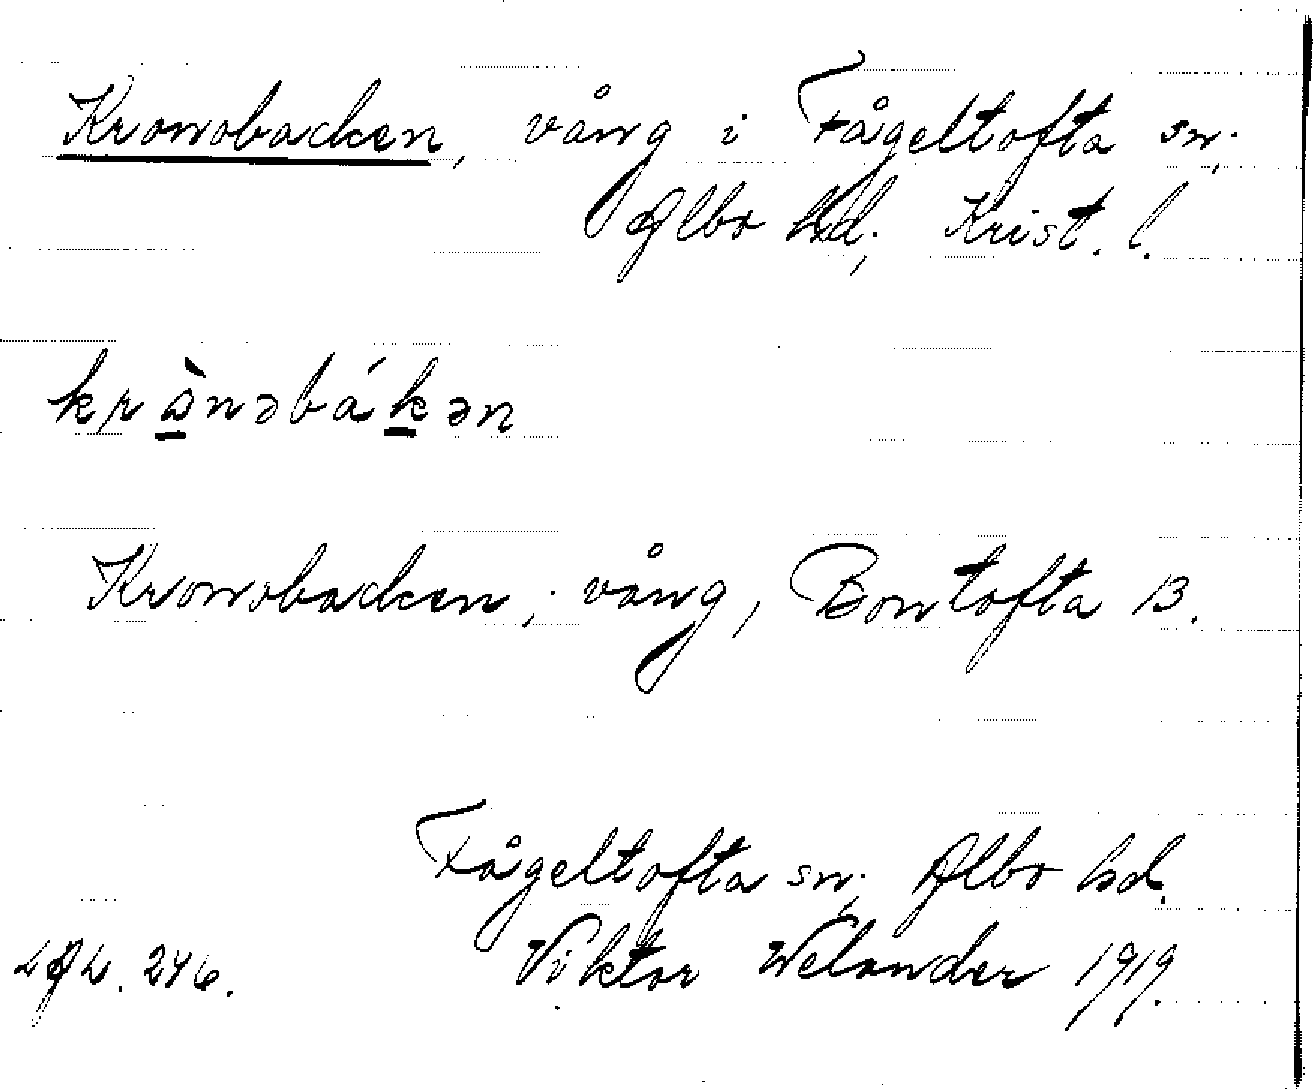 Kronobacken, vång i Fågeltofta sn,
Albo hd, Krist. l.
krånəbákən
Kronobacken, vång, Bontofta 13.
Fågeltofta sn, Albo hd.
Viktor Welander 1919.
246.